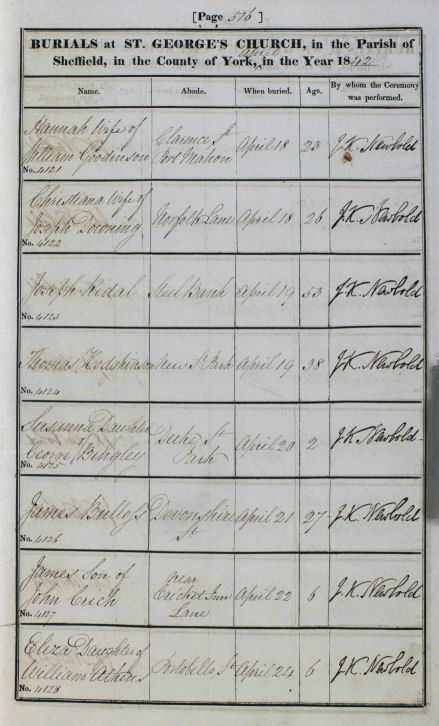 [Page 516 ]
BURIALS at ST. GEORGE'S CHURCH, in the Parish of
April
Sheffield, in the County of York, in the Year 1842
Name. Abode. When buried. Age. By whom the Ceremony was performed.
Hannah Wife of
William Goodinson
No. 4121
Clarence St
Port Mahon
April 18
23
J.K. Newbold
Christiana Wife of
Joseph Downing
No. 4122
Norfolk Lane
April 18
26
J.K. Newbold
Joseph Ridal
No. 4123
Steel Bank
April 19
53
J.K. Newbold
Thomas Hodgkinson
No. 4124
New St Park
April 19
38
J.K. Newbold
Susanna Daughter
of
George Bingley
No. 4125
Duke St
Park
April 20
2
J.K. Newbold
James
No. 4126
Devonshire
St
April 21
27
J.K. Newbold
James Son of
John Crich
No. 4127
near
Cricket Inn
Lane
April 22
6
J.K. Newbold
Eliza Daughter of
William Atkins
No. 4128
Portobello St
April 24
6
J.K. Newbold